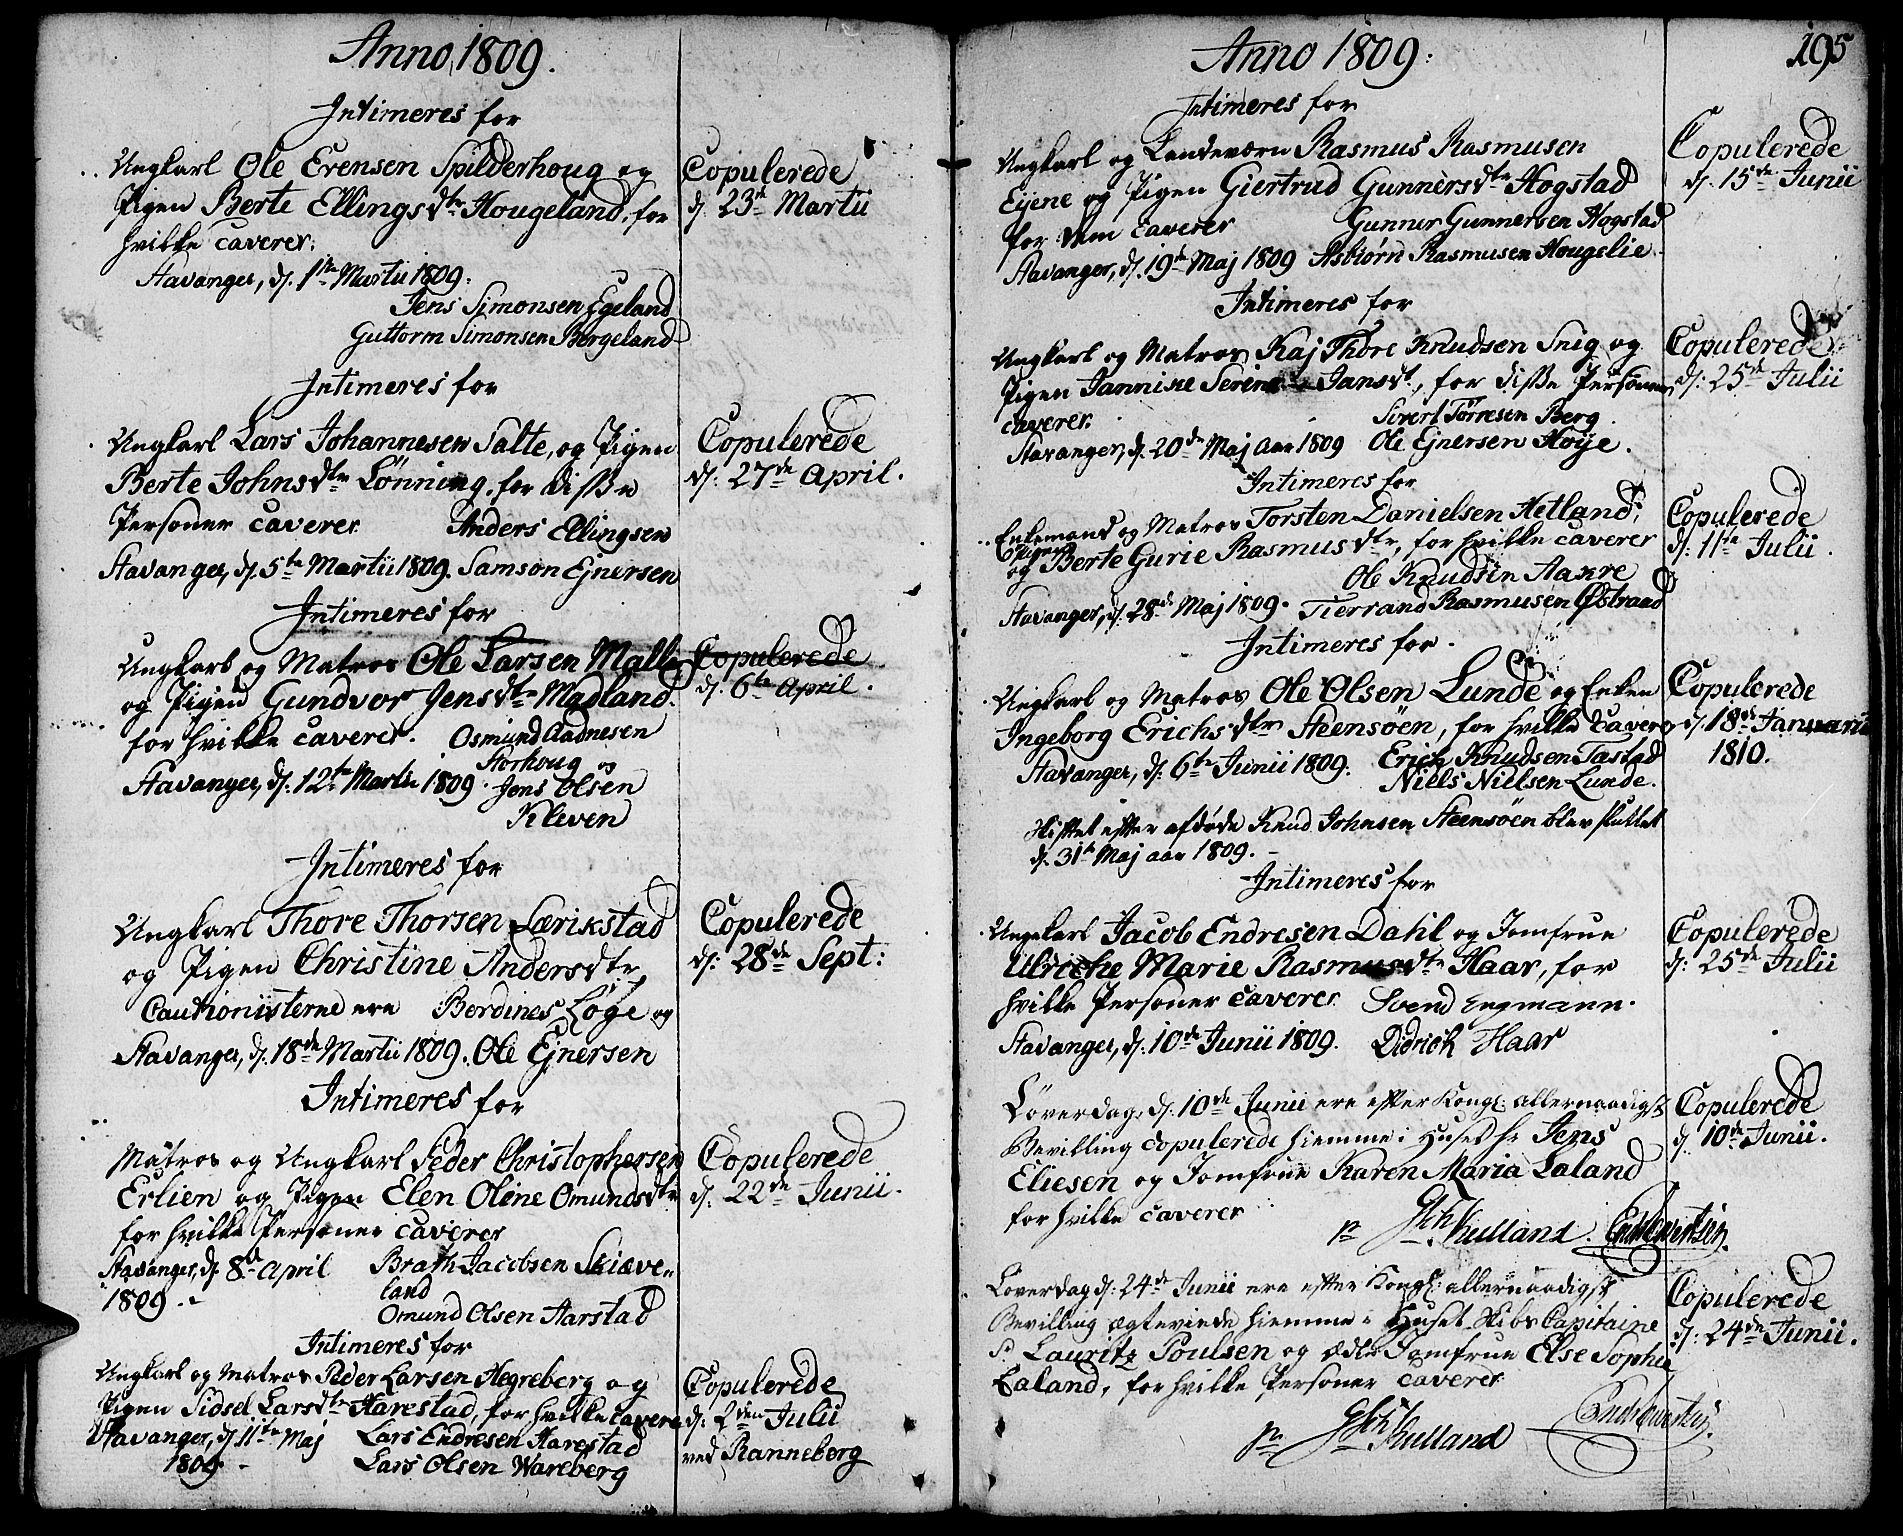 Anno, 1809.
Intimeres for
Ungkarl Ole Evensen Spilderhoug og
Pigen Berte Ellingsdtr Hougeland, for
hvilke caverer.
Stavanger, d. 1ste Martii 1809.
Jens Simonsen Egeland
Guttorm Simonsen Bergeland
Copulerede
d. 23de Martii
Intimeres for
Ungkarl Lars Johannesen Salte, og Pigen
Berte Johnsdtr Lønning, for disse
Personer caverer Anders Ellingsen
Stavanger, d. 5te Martii 1809. Samson Ejnersen
Copulerede
d. 27de April.
Intimeres for
Ungkarl og Matros Ole Larsen Malle
og Pigen Gundvor Jensdtr Madland.
for hvilke caverer. Osmund Aadnesen
Storhoug og
Stavanger, d. 12te Martii 1809. Jens Olsen
Kleven
Copulerede
d. 6te April.
Intimeres for
Ungkarl Thore Thorsen Lærikstad
og Pigen Christine Andersdtr,
Cautionisterne ere Berdines Løge og
Stavanger, d. 18de Martii 1809. Ole Ejnersen
Copulerede
d. 28de Sept:
Intimeres for
Matros og Ungkarl Peder Christophersen
Erlien og Pigen Elen Oline Omundsdtr
for hvilke Personer caverer
Stavanger, d. 8de April Brath Jacobsen Skiæve-
1809. land
Omund Olsen Aarstad
Copulerede
d. 22de Junii.
Intimeres for
Ungkarl og Matros Peder Larsen Hegreberg og
Pigen Sidsel Larsdtr Harestad, for hvilke caverer
Stavanger, d. 11te Maj Lars Endresen Harestad
1809. Lars Olsen Wareberg
Copulerede
d. 2den Julii
ved Ranneberg
Anno 1809:
195
Intimeres for
Ungkarl og Landeværn Rasmus Rasmusen
Eijene og Pigen Giertrud Gunnersdtr Hogstad
for dem caverer Gunner Gunnersen Hogstad
Stavanger, d. 19de Maj 1809 Asbiørn Rasmusen Hougslie.
Copulerede
d. 15de Junii
Intimeres for
Ungkarl og Matros Kaj Thore Knudsen Snig og
Pigen Jannike Serine Jansdt., for disse Personer
caverer. Sivert Tørresen Berg
Stavanger, d. 20de Maj aar 1809 Ole Ejnersen Hoÿe.
Copulerede
d. 25de Julii
Intimeres for
Enkemand og Matros Torsten Danielsen Hetland,
Pigen
og Berte Gurie Rasmusdtr, for hvilke caverer
Ole Knudsen Aakre
Stavanger, d. 28de Maj 1809. Tierrand Rasmusen Østraad
Copulerede
d. 11te Julii.
Intimeres for.
Ungkarl og Matros Ole Olsen Lunde og Enken
Ingeborg Erichsdtr Steensøen, for hvilke caverer
Stavanger, d. 6te Junii 1809. Erich Knudsen Tastad
Niels Nielsen Lunde.
Skiftet efter afdøde Knud Johnsen Steensøen blev sluttet
d. 31te Maj aar 1809.
Copulerede
d. 18de Januarii
1810.
Intimeres for
Ungkarl Jacob Endresen Dahl og Jomfrue
Ulricke Marie Rasmusdtr Haar, for
hvilke Personer caverer Svend Engmann.
Stavanger, d. 10de Junii 1809. Didrich Haar
Copulerede
d. 25de Julii
Løverdag, d. 10de Junii ere efter Kongl: allernaadigst
Bevilling copulerede hiemme i Huset hr Jens
Eliesen og Jomfrue Karen Maria Laland
for hvilke caverer
Kielland.
Copulerede
d. 10de Junii.
Løverdag d. 24de Junii ere efter Kongl: allernaadigst
Bevilling ægteviede hiemme i Huset Skibs Capitaine
Lauritz Poulsen og ædle Jomfrue Else Sophie
Laland, for hvilke Personer caverer
Kielland
Copulerede
d. 24de Junii.